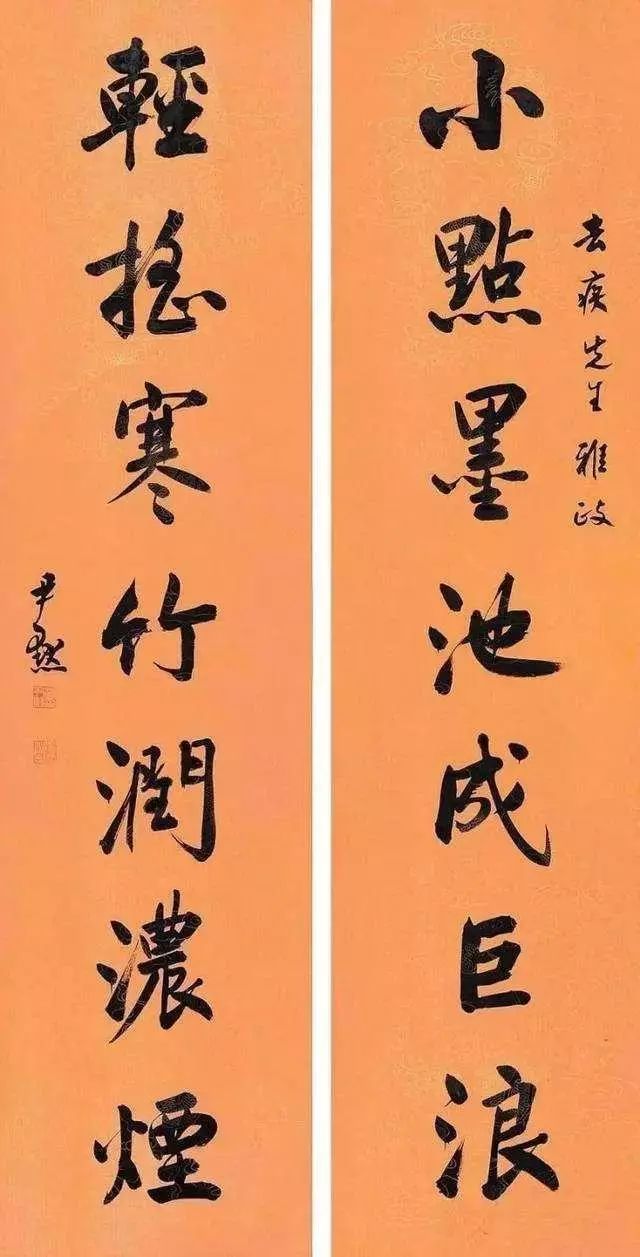 去疾先生雅政
小點墨池成巨浪
輕摇寒竹潤濃煙
尹默